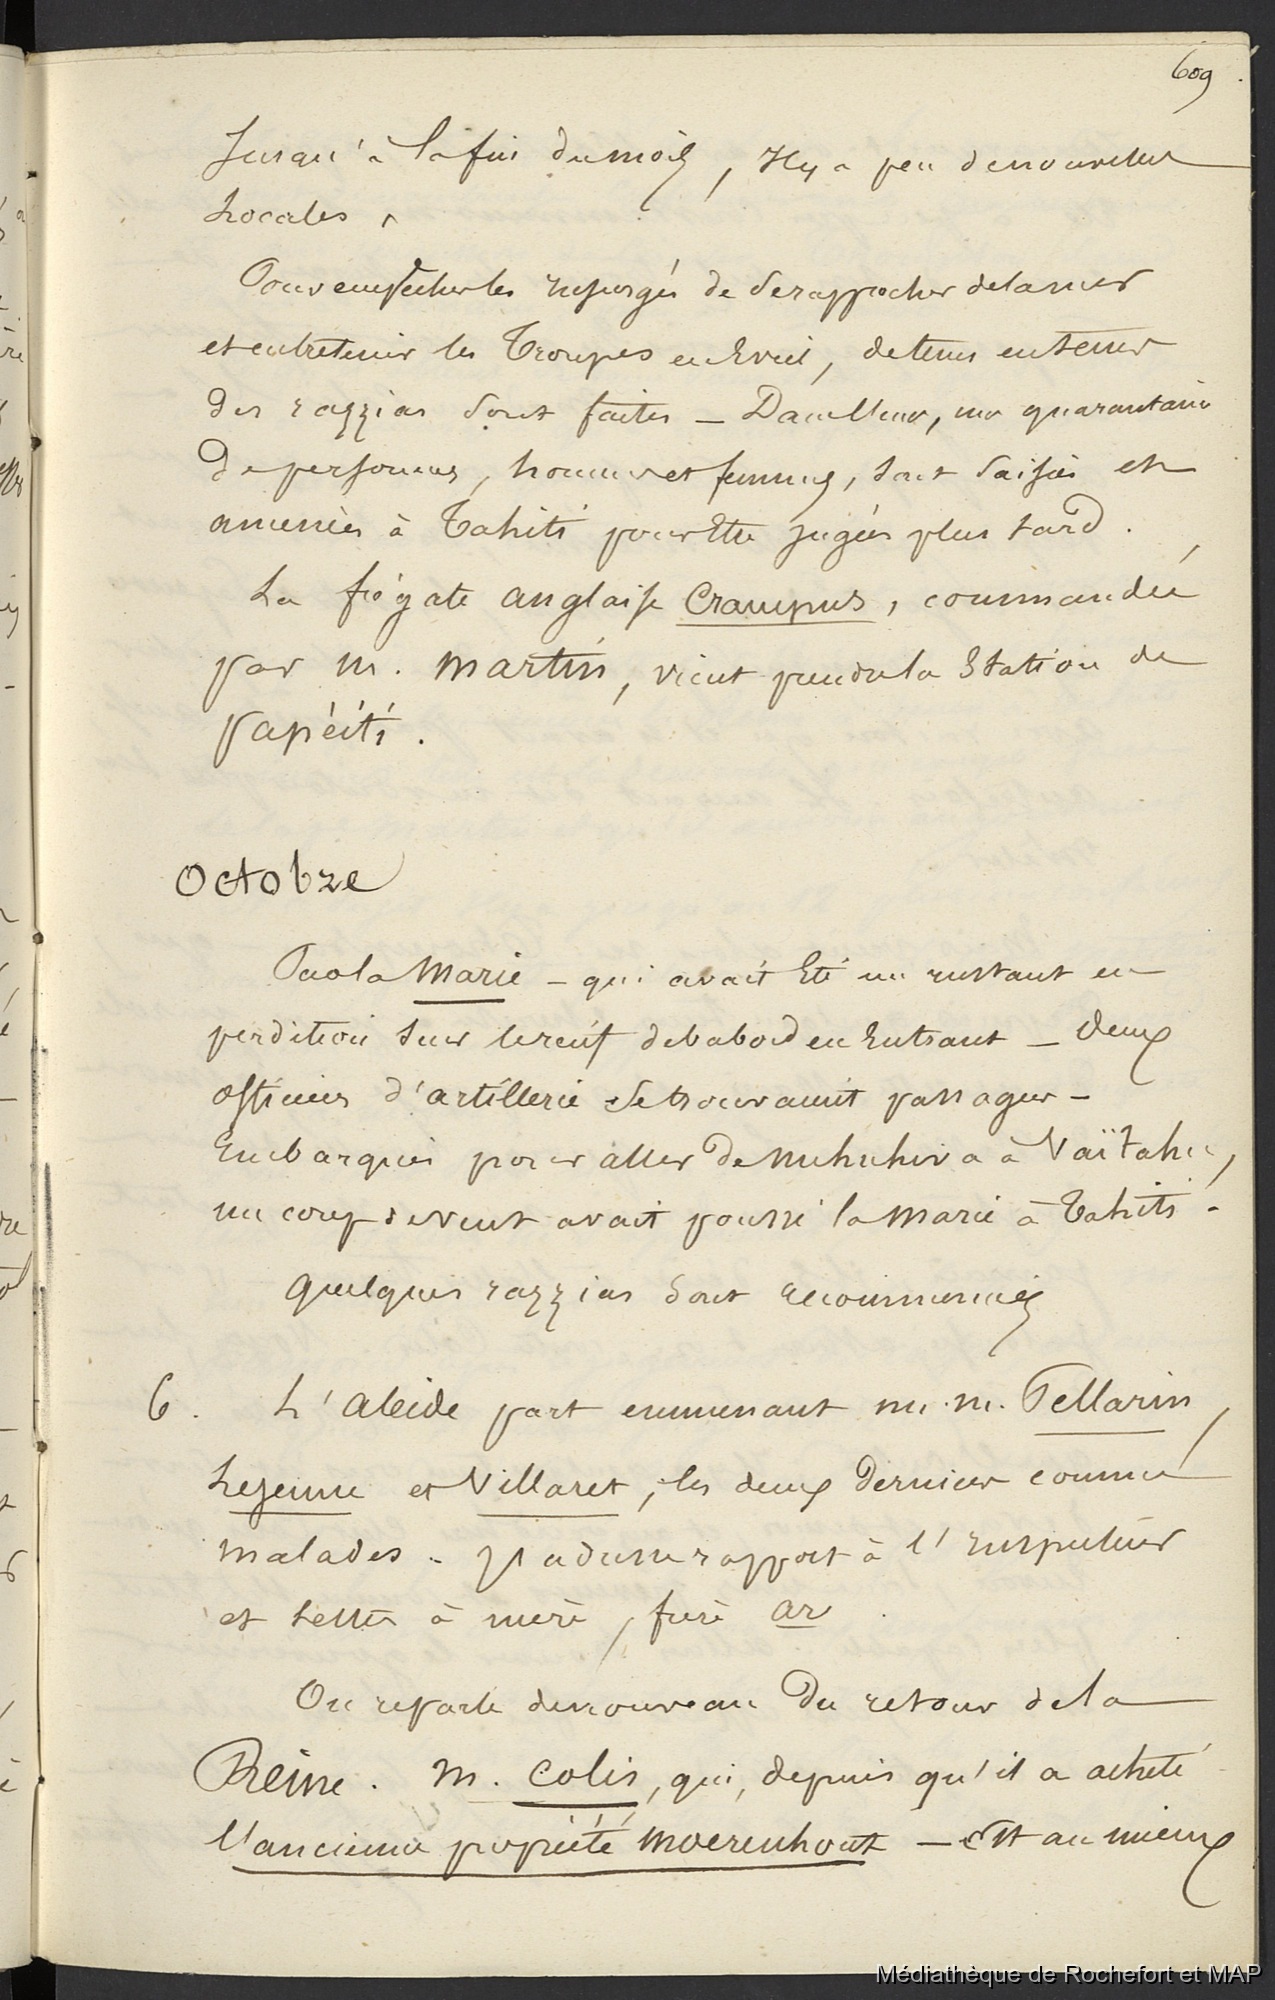 609
Jusqu'à la fin du mois, Il y a peu de nouvelles
Locales,
Pour empêcher les refusgés de se rapprocher de la mer
et entretenir les Troupes en Eveil,
des razzias sont faites — D'ailleurs, une quarantaine
de personnes, hommes et femmes, sont saisies et
amenées à Tahiti pour être jugées plus tard.
La frégate anglaise Crampus, commandée
par M. Martin, vient prendre la Station de
Papéiti.
Octobre
La Marie — qui avait Eté un instant en
perdition sur le récif de babord en Entrant — deux
officiers d'artillerie se trouvaient passagers —
Embarqués pour aller de Nuhuhiva à Vaïtahu,
un coup de vent avait poussé la Marie à Tahiti.
Quelques razzias sont recommencées
6. L'Alcide part emmenant M.M. Pellarin,
Lejeune et Villaret, les deux derniers comme
malades. J'adresse rapport à l'Inspecteur
et Lettres à mère, frère ar
On reparle de nouveau du retour de la
Reine. M. Colis, qui, depuis qu'il a acheté
l'ancienne propriété Moerenhout — est au mieux
Médiathèque de Rochefort et MAP